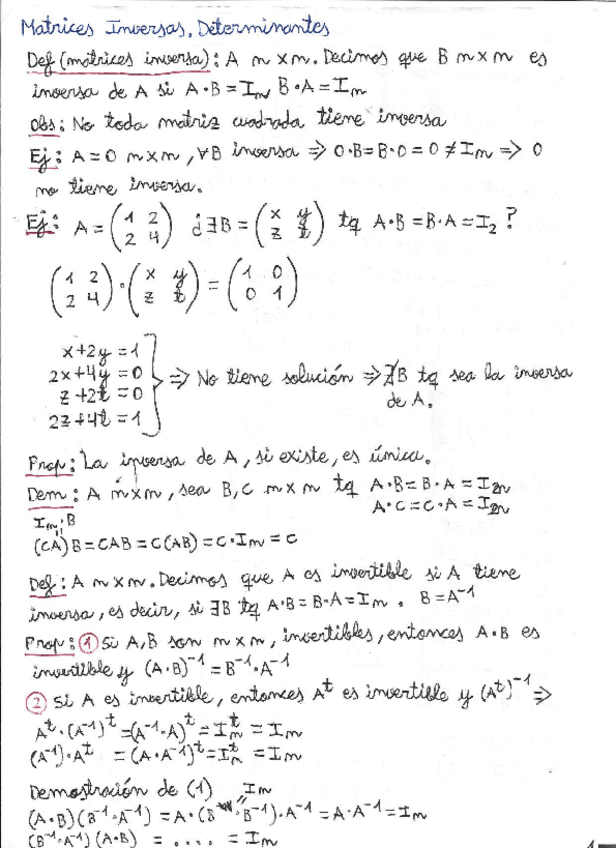 Matrices Inversas, Determinantes
Def (matrices inversa): A m x m. Decimos que B m x m es
inversa de A si A·B = Im, B·A = Im
Obs: No toda matriz cuadrada tiene inversa
Ej: A = 0 m x m, ∀B inversa ⇒ 0·B = B·0 = 0 ≠ Im ⇒ 0
no tiene inversa.
Ej: A = (1 2 / 2 4) ¿∃B = (x y / z t) tq A·B = B·A = I2?
(1 2 / 2 4)·(x y / z t) = (1 0 / 0 1)
x+2y = 1
2x+4y = 0
z+2t = 0
2z+4t = 1
} ⇒ No tiene solución ⇒ ∄B tq sea la inversa
de A.
Prop: La inversa de A, si existe, es única.
Dem: A m x m, sea B, C m x m tq A·B = B·A = Im
A·C = C·A = Im
Im·B
"
(CA)B = CAB = C(AB) = C·Im = C
Def: A m x m. Decimos que A es invertible si A tiene
inversa, es decir, si ∃B tq A·B = B·A = Im. B = A⁻¹
Prop: ① Si A, B son m x m, invertibles, entonces A·B es
invertible y (A·B)⁻¹ = B⁻¹·A⁻¹
② Si A es invertible, entonces Aᵗ es invertible y (Aᵗ)⁻¹ ⇒
Aᵗ·(A⁻¹)ᵗ = (A⁻¹·A)ᵗ = Imᵗ = Im
(A⁻¹)·Aᵗ = (A·A⁻¹)ᵗ = Imᵗ = Im
Demostración de (1) Im
"
(A·B)(B⁻¹·A⁻¹) = A·(B·B⁻¹)·A⁻¹ = A·A⁻¹ = Im
(B⁻¹·A⁻¹)(A·B) = .... = Im